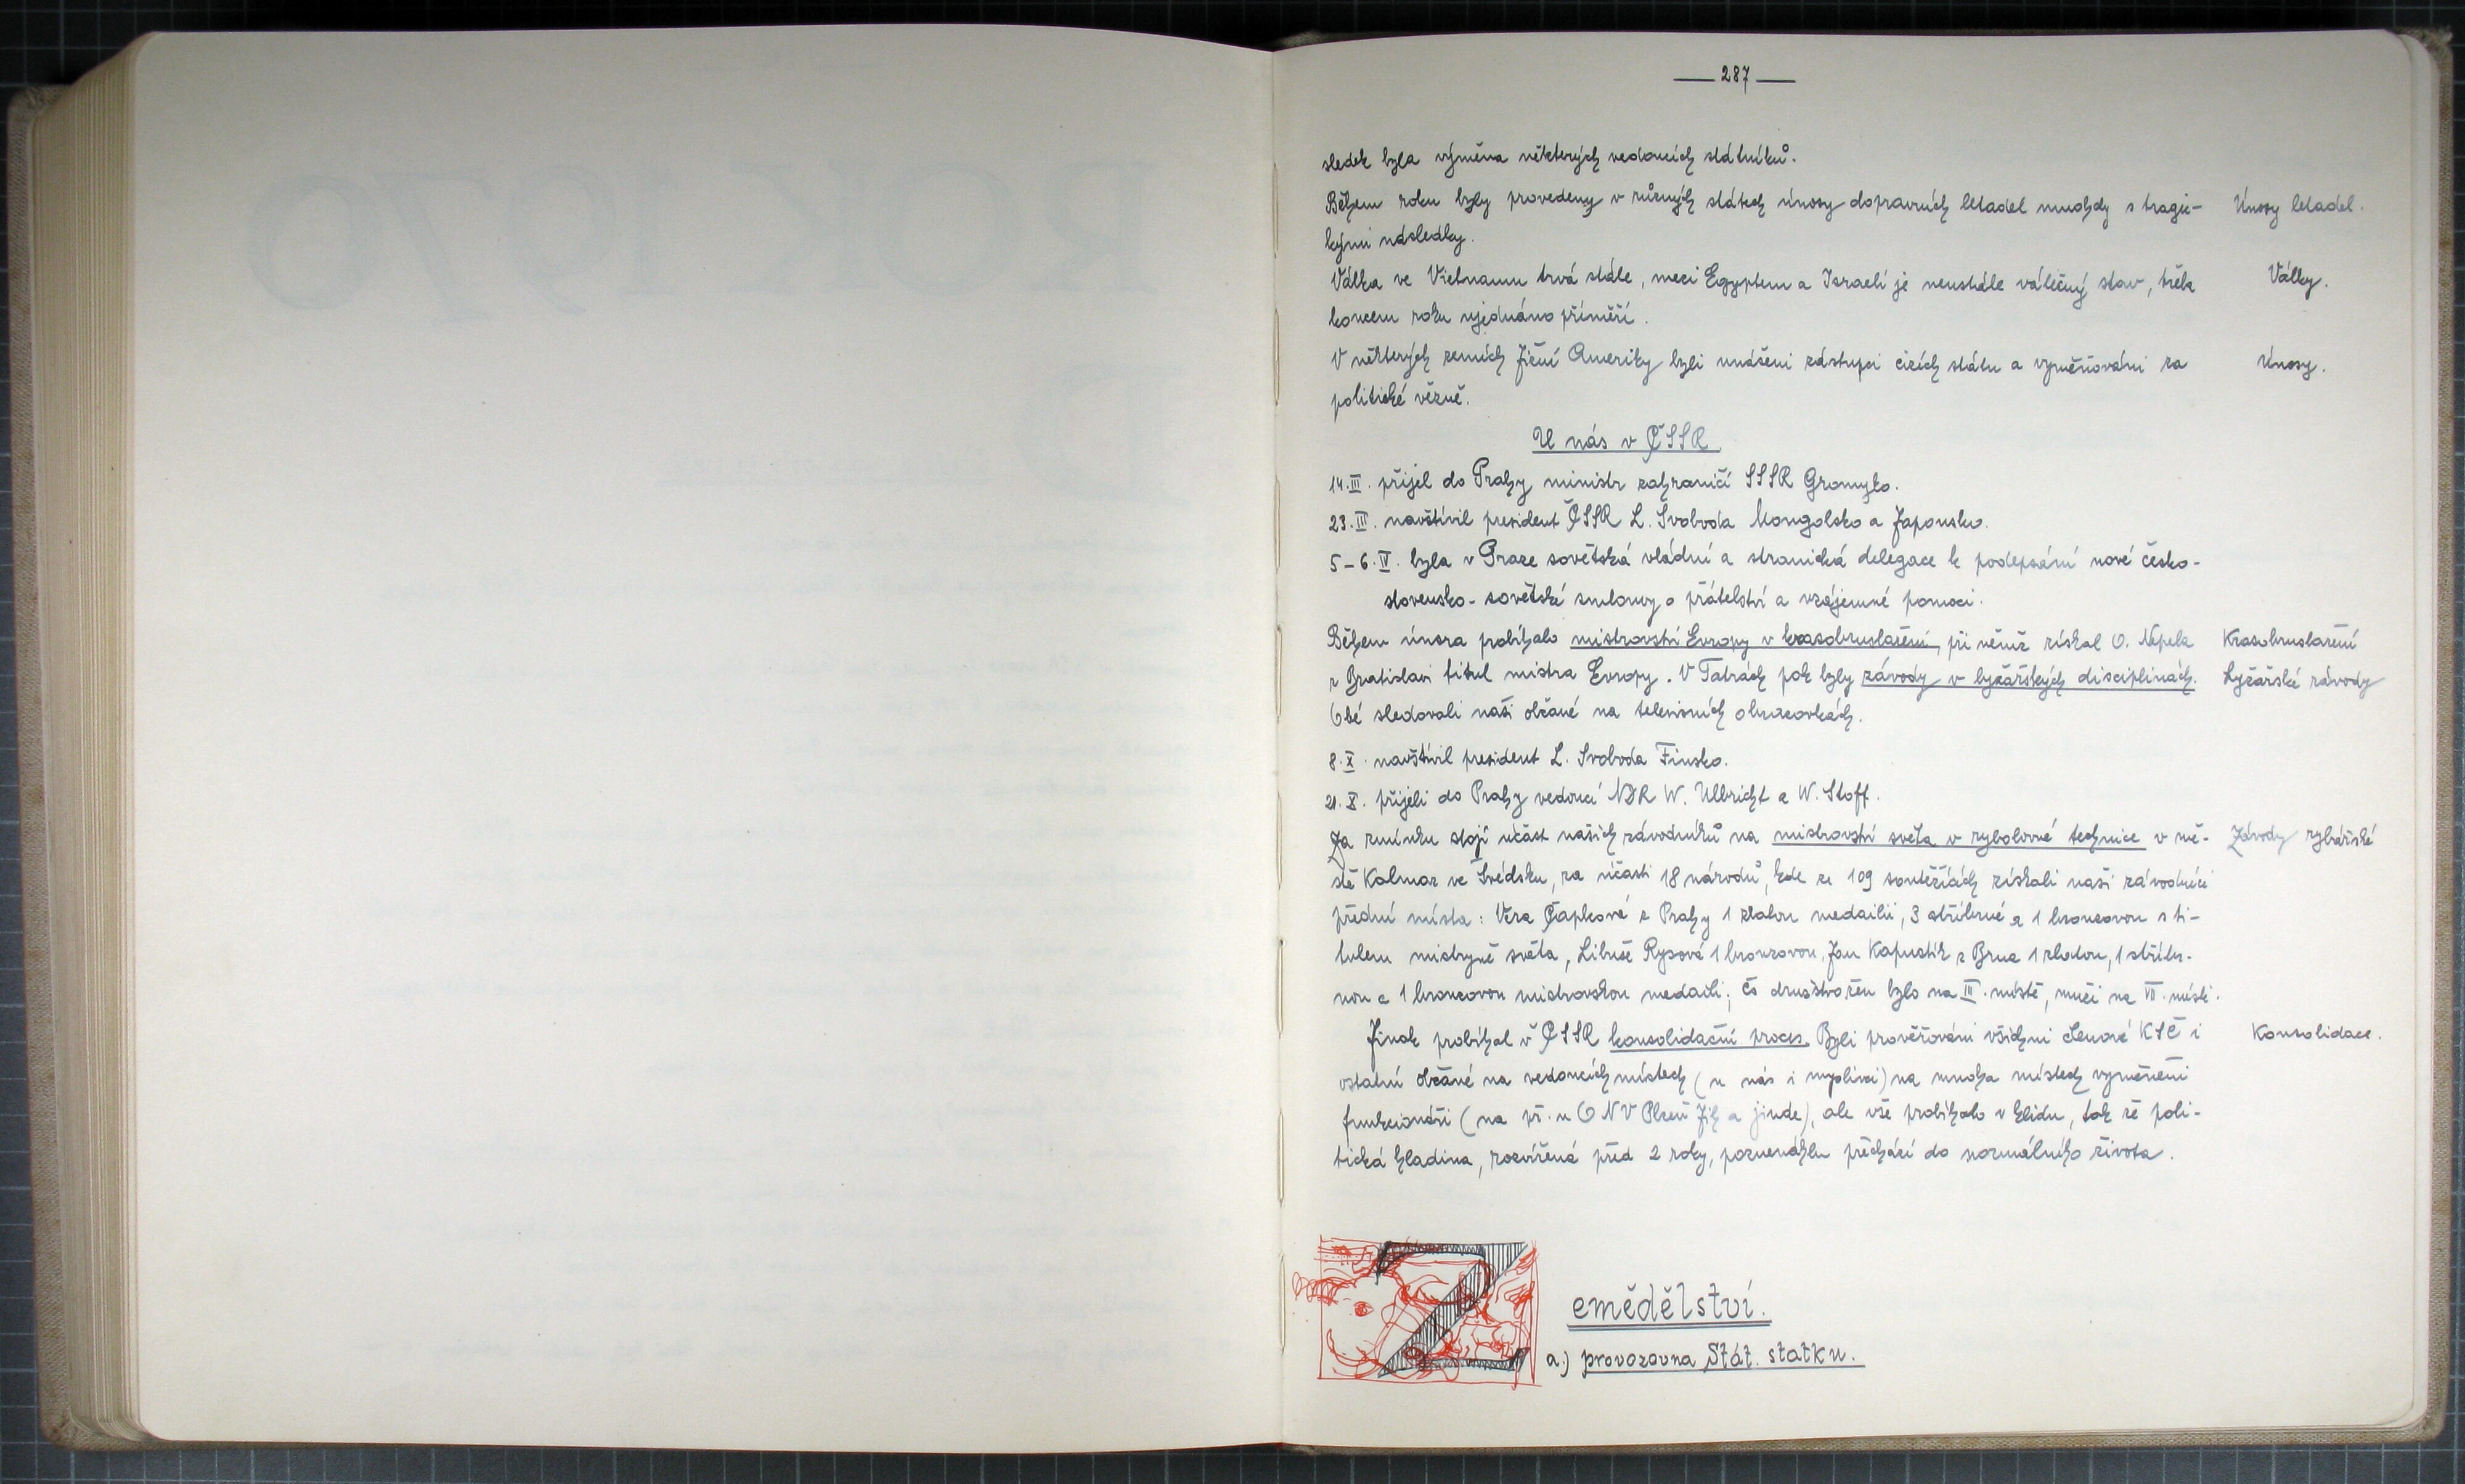 — 287 —
sledek byla výměna některých vedoucích státníků.
Během roku byly provedeny v různých státech únosy dopravních letadel mnohdy s tragic- Únosy letadel.
kými následky.
Válka ve Vietnamu trvá stále, mezi Egyptem a Israelí je neustále válečný stav, třeba Války.
koncem roku ujednáno příměří.
V některých zemích Jižní Ameriky byli unášeni zástupci cizích státu a vyměňováni za Únosy.
politické vězně.
U nás v ČSSR
14.III. přijel do Prahy ministr zahraničí SSSR Gromyko.
23.III. navštívil president ČSSR L. Svoboda Mongolsko a Japonsko.
5-6.IV. byla v Praze sovětská vládní a stranická delegace k podepsání nové česko-
slovensko-sovětské smlouvy o přátelství a vzájemné pomoci.
Během února probíhalo mistrovství Evropy v krasobruslaření, při němž získal O. Nepela Krasobruslaření
z Bratislavi titul mistra Evropy. V Tatrách pak byly závody v lyžařských disciplinách. Lyžařské závody
Obé sledovali naši občané na televisních obrazovkách.
8.X. navštívil president L. Svoboda Finsko.
21.X. přijeli do Prahy vedoucí NDR W. Ulbricht a W. Stoff.
Za zmínku stojí účast našich závodníků na mistrovství světa v rybolovné technice v mě- Závody rybářské
stě Kalmar ve Švédsku, za účasti 18 národů, kde ze 109 soutěžících získali naši závodníci
přední místa: Věra Čapková z Prahy 1 zlatou medailii, 3 stříbrné a 1 bronzovou s ti-
tulem mistryně světa, Libuše Rysová 1 bronzovou, Jan Kapustík z Brna 1 zlatou, 1 stříbr-
nou a 1 bronzovou mistrovskou medaili; čs družstvo žen bylo na III. místě, muži na VII. místě.
Jinak probíhal v ČSSR konsolidační proces. Byli prověřováni všichni členové KSČ i Konsolidace.
ostatní občané na vedoucích místech (u nás i myslivci) na mnoha místech vyměněni
funkcionáři (na př. u ONV Plzeň Jih a jinde), ale vše probíhalo v klidu, tak že poli-
tická hladina, rozvířená před 2 roky, poznenáhlu přechází do normálního života.
Zemědělství.
a.) provozovna Stát. statku.